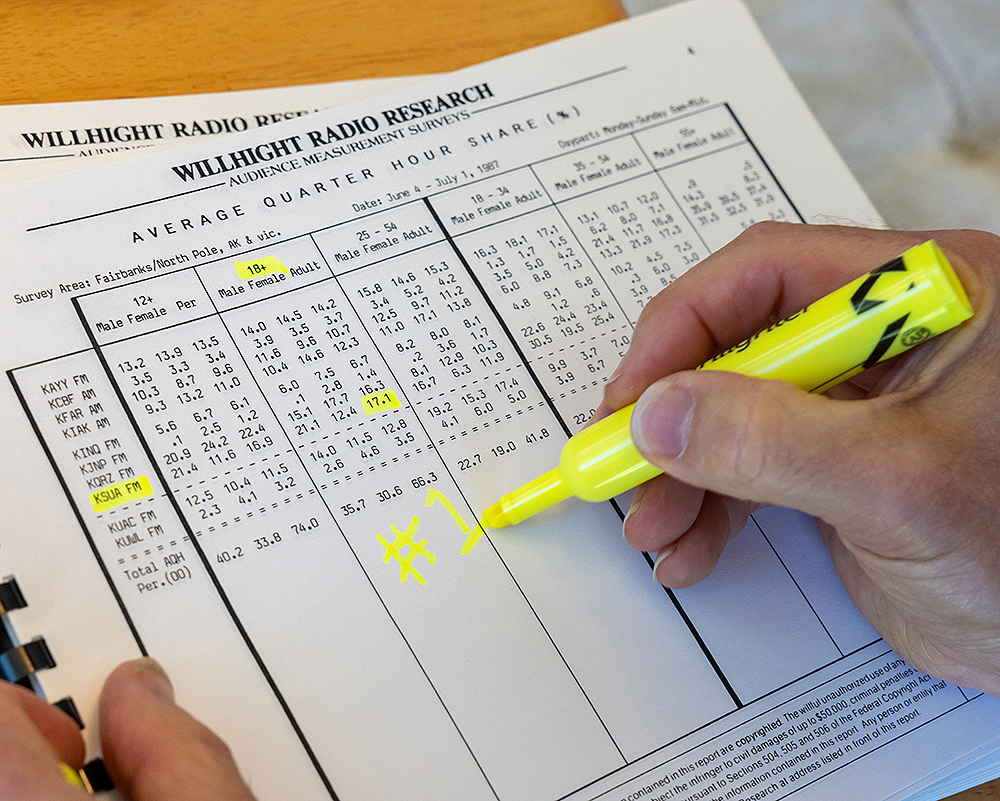 WILLHIGHT RADIO RESEARCH
WILLHIGHT RADIO RESEARCH
AUDIENCE MEASUREMENT SURVEYS
4
AVERAGE QUARTER HOUR SHARE (%)
Survey Area: Fairbanks/North Pole, AK & vic. Date: June 4 - July 1, 1987 Daypart: Monday-Sunday 6am-Mid.
12+ 18+ 25 - 54 18 - 34 35 - 54 55+
Male Female Per Male Female Adult Male Female Adult Male Female Adult Male Female Adult Male Female Adult
KAYY FM 13.2 13.9 13.5 14.0 14.5 14.2 15.8 14.6 15.3 16.3 18.1 17.1 13.1 10.7 12.0 .9 .5
KCBF AM 3.5 3.3 3.4 3.9 3.5 3.7 3.4 5.2 4.2 1.3 1.7 1.5 6.2 8.0 7.1 14.3 8.3
KFAR AM 10.3 8.7 9.6 11.6 9.6 10.7 12.5 9.7 11.2 3.5 5.0 4.2 21.4 11.7 35.9 39.5 37.4
KIAK AM 9.3 13.2 11.0 10.4 14.6 12.3 11.0 17.1 13.8 6.0 8.8 7.3 13.3 21.9 17.3 31.5 32.5
KINQ FM 5.6 6.7 6.1 6.0 7.5 6.7 8.2 8.0 8.1 4.8 9.1 6.8 10.2 4.5 7.5
KJNP FM .1 2.5 1.2 .1 2.8 1.4 .2 3.6 1.7 1.2 .6 .3 6.0 3.0
KQRZ FM 20.9 24.2 22.4 15.1 17.7 16.3 8.1 12.9 10.3 22.6 24.4 23.4
KSUA FM 21.4 11.6 16.9 21.1 12.4 17.1 16.7 6.3 11.9 30.5 19.5 25.4
KUAC FM 12.5 10.4 11.5 14.0 11.5 12.8 19.2 15.3 17.4 9.9 3.7 7.0
KUWL FM 2.3 4.1 3.2 2.6 4.6 3.5 4.1 6.0 5.0 3.9 6.7
Total AQH
Per.(00) 40.2 33.8 74.0 35.7 30.6 66.3 22.7 19.0 41.8 22.0
#1
contained in this report are copyrighted. The willful unauthorized use of any
subject the infringer to civil damages of up to $50,000, criminal penalties
pursuant to Sections 504, 505 and 506 of the Federal Copyright Act
the information contained in this report. Any person or entity that
Research at address listed in front of this report.